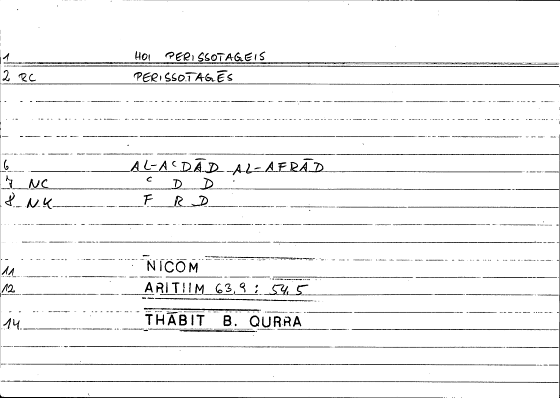 1 HOI PERISSOTAGEIS
2 RC PERISSOTAGĒS
6 AL-AʿDĀD AL-AFRĀD
7 NC ʿ D D
8 NK F R D
11 NICOM
12 ARITHM 63,9 : 54,5
14 THĀBIT B. QURRA